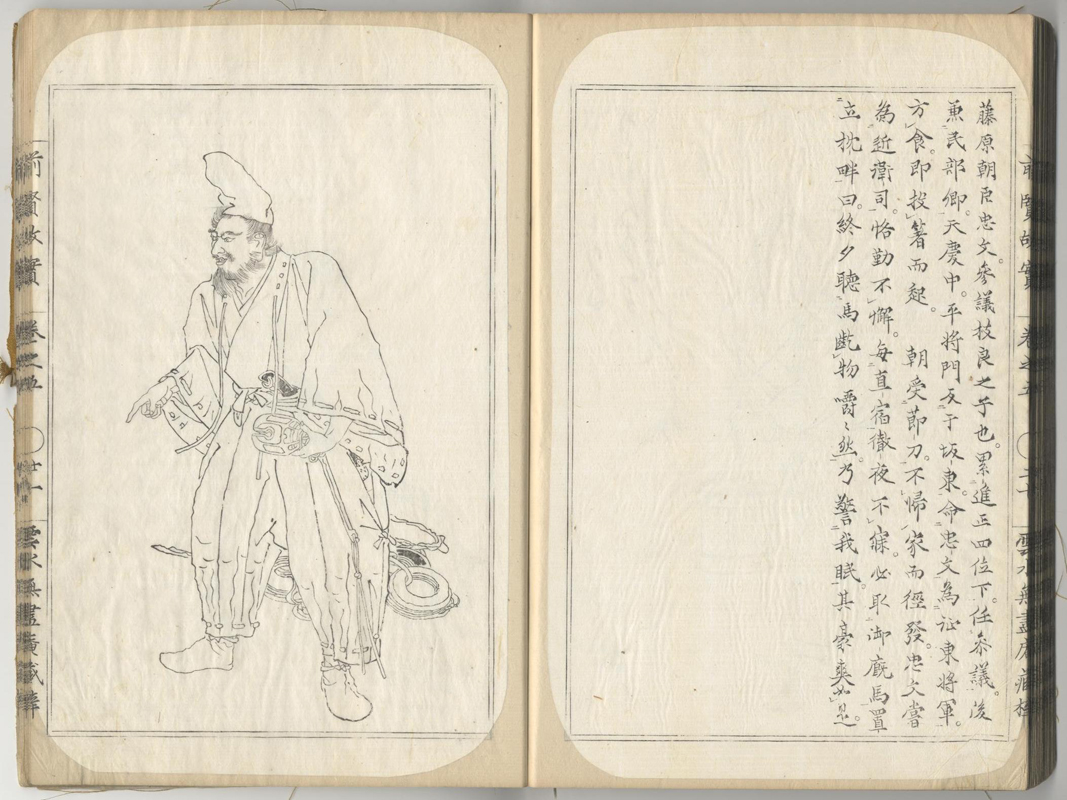 藤原朝臣忠文。參議枝良之子也。累進正四位下。任參議。後
兼民部卿。天慶中。平將門反于坂東。命忠文為征東將軍。
方食。即投箸而起。朝受節刀。不歸家而徑發。忠文嘗
為近衛司。恪勤不懈。每直宿徹夜不寐。必取御廄馬置
立枕畔曰。終夕聽馬齕物嚼〻然。乃警我眠。其豪爽如是。
前賢故實
卷之五
雲水無盡庵藏
前賢故實
卷之五
雲水無盡庵藏